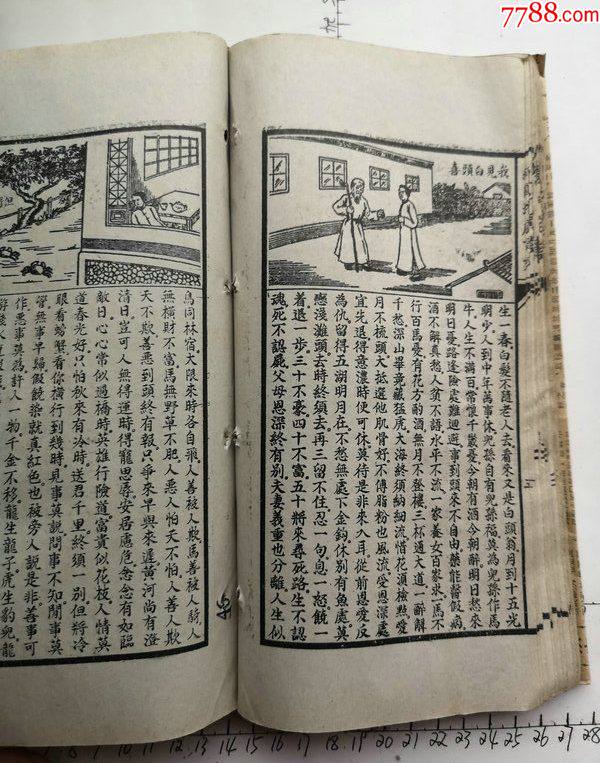 7788.com
我見白頭喜
生一春白髮不隨老人去看來又是白頭翁。月到十五光
明少。人到中年萬事休。兒孫自有兒孫福。莫為兒孫作馬
牛。人生不滿百。常懷千歲憂。今朝有酒今朝醉。明日愁來
明日憂。路逢險處難迴避。事到頭來不自由。藥能醫假病。
酒不解真愁。人貧不語。水平不流。一家養女百家求。一馬不
行百馬憂。有花方酌酒。無月不登樓。三杯通大道。一醉解
千愁。深山畢竟藏猛虎。大海終須納細流。惜花須檢點。愛
月不梳頭。大抵選他肌骨好。不傅脂粉也風流。受恩深處
宜先退。得意濃時便可休。莫待是非來入耳。從前恩愛反
為仇。留得五湖明月在。不愁無處下金鈎。休別有魚處。莫
戀淺灘頭。去時終須去。再三留不住。忍一句。息一怒。饒一
着。退一步。三十不豪。四十不富。五十將來尋死路。生不認
魂。死不認屍。父母恩深終有別。夫妻義重也分離。人生似
鳥同林宿。大限來時各自飛。人善被人欺。馬善被人騎。人
無橫財不富。馬無野草不肥。人惡人怕天不怕。人善人欺
天不欺。善惡到頭終有報。只爭來早與來遲。黃河尚有澄
清日。豈可人無得運時。得寵思辱。安居慮危。念念有如臨
敵日。心心常似過橋時。英雄行險道。富貴似花枝。人情莫
道春光好。只怕秋來有冷時。送君千里。終須一別。但將冷
眼看螃蟹。看你橫行到幾時。見事莫說。問事不知。閒事莫
管。無事早歸。假饒染就真紅色。也被旁人說是非。善事可
作。惡事莫為。許人一物。千金不移。龍生龍子。虎生豹兒。龍
11 12 13 14 15 16 17 18 19 20 21 22 23 24 25 26 27 28